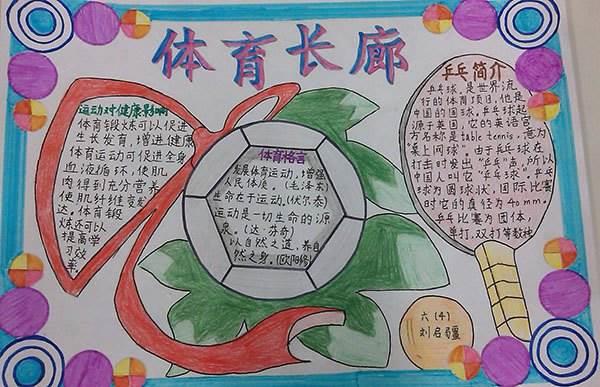 体育长廊
运动对健康影响
体育锻炼可以促进
生长发育,增进健康
体育运动可促进全身
血液循环,使肌
肉得到充分营养
使肌纤维变发
达。体育锻
炼还可以
提高学
习效
率。
体育格言
发展体育运动,增强
人民体质。(毛泽东)
生命在于运动。(伏尔泰)
运动是一切生命的源
泉。(达·芬奇)
以自然之道,养自
然之身。(欧阳修)
乒乓简介
乒乓球,是世界流
行的体育项目,他是
中国的国球。乒乓球起
源于英国,它的英语官
方名称是table tennis,意为
"桌上网球"。由于乒乓球在
打击时发出"乒乓"声,所以
中国人叫它"乒乓球"。乒乓
球为圆球状,国际比赛
时它的直径为40mm。
乒乓比赛为团体,
单打,双打等数种
六(4)
刘启疆